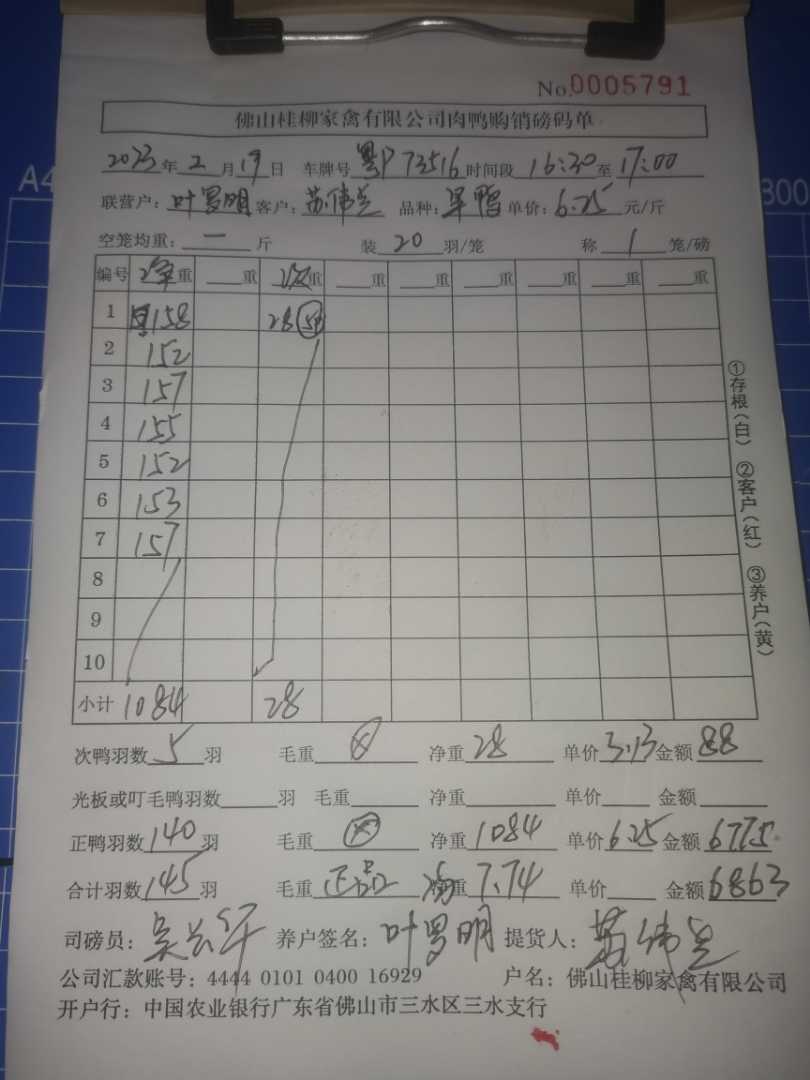 No.0005791
佛山桂柳家禽有限公司肉鸭购销磅码单
2023年2月19日 车牌号 粤P73516 时间段 16:30至17:00
联营户：叶罗明 客户：苏伟兰 品种：单价：6.25元/斤
空笼均重：一斤 装20羽/笼 称1笼/磅
编号 重 重 次重 重 重 重 重 重 重
1 158 28
2 152
3 157
4 155
5 152
6 153
7 157
8
9
10
小计 1084 28
次鸭羽数5羽 毛重 净重28 单价3.13 金额88
光板或叮毛鸭羽数 羽 毛重 净重 单价 金额
正鸭羽数140羽 毛重 净重1084 单价6.25 金额6775
合计羽数145羽 毛重 重7.74 单价 金额6863
司磅员： 养户签名：叶罗明 提货人：苏伟兰
公司汇款账号：4444 0101 0400 16929 户名：佛山桂柳家禽有限公司
开户行：中国农业银行广东省佛山市三水区三水支行
①存根（白） ②客户（红） ③养户（黄）
A4
300